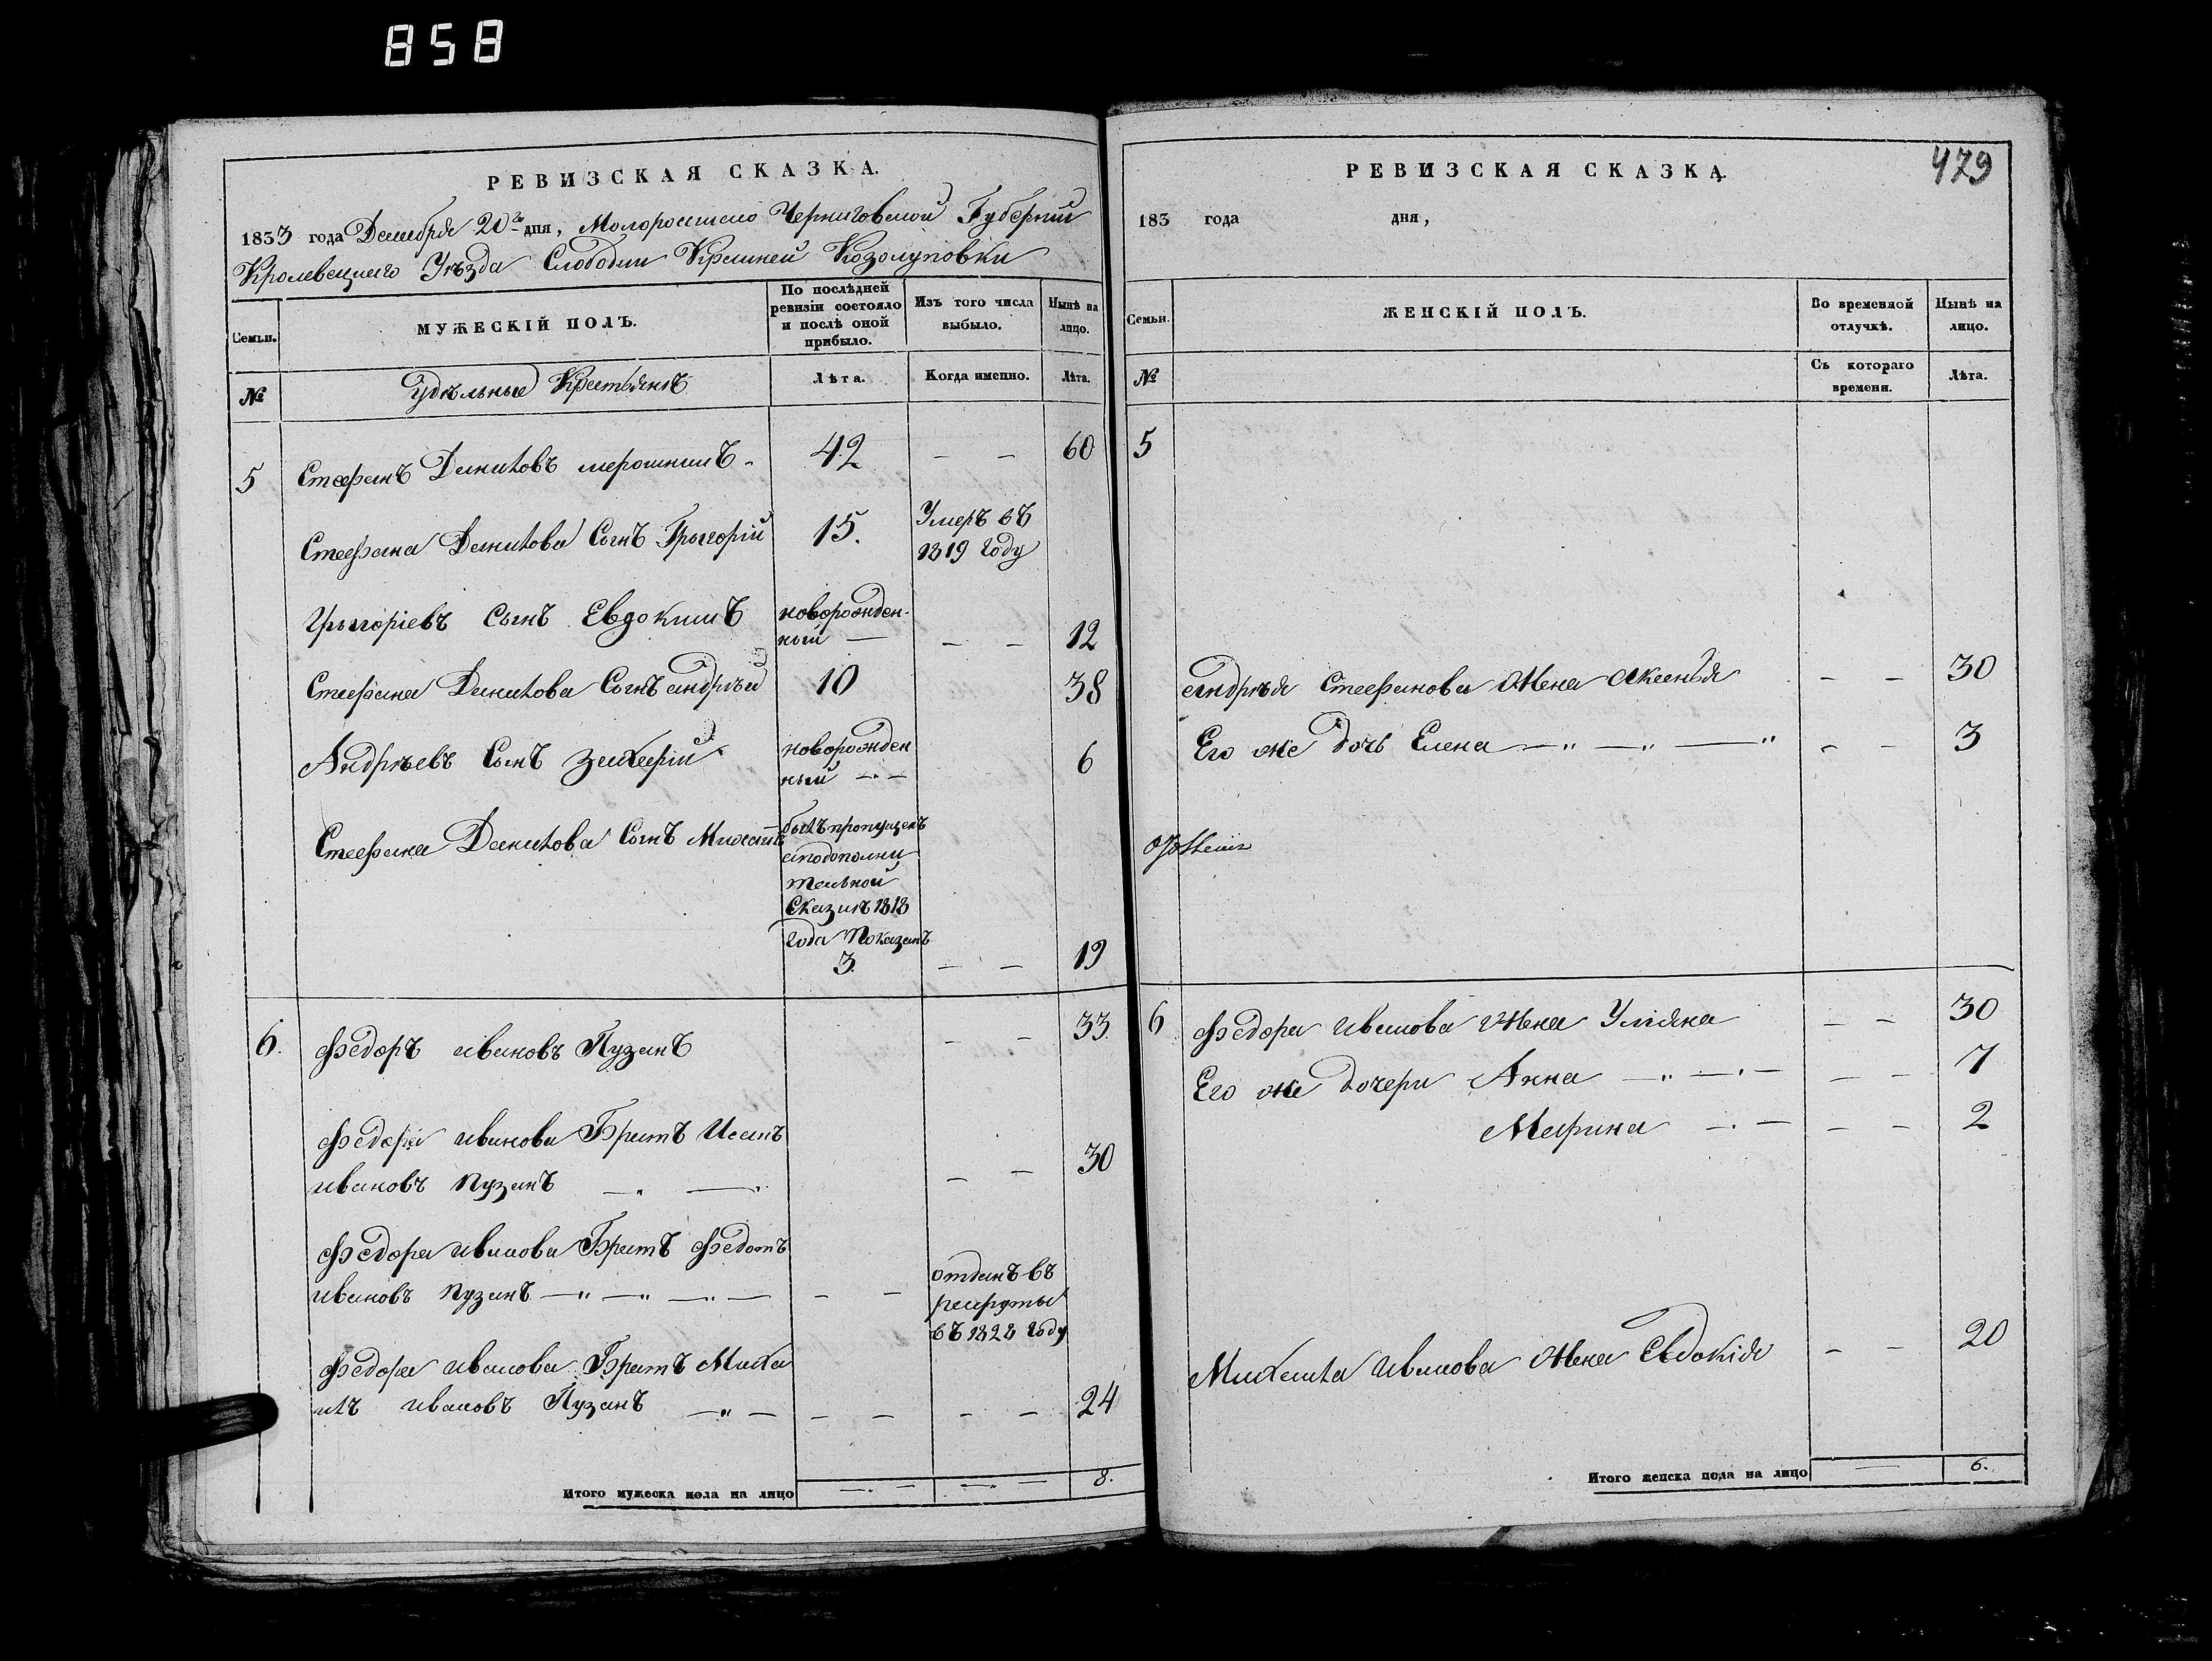 858
РЕВИЗСКАЯ СКАЗКА.
1833 года Декабря 20го дня, Малоросийско Черниговской Губернии
Кролевецкаго Уѣзда Слободки Козолуповки
Семьи.
МУЖЕСКІЙ ПОЛЪ.
По послѣдней
ревизіи состояло
и послѣ оной
прибыло.
Изъ того числа
выбыло.
Нынѣ на
лицо.
№
Удѣльные Крестьянѣ
Лѣта.
Когда именно.
Лѣта.
5 Стефанъ Даниловъ мерошникъ - 42 — — 60
Стефана Данилова Сынъ Григорій 15. Умеръ въ
1819 году
Григоріевъ Сынъ Евдокимъ новорожден-
ный — — — 12
Стефана Данилова Сынъ андрѣй 10 38
Андрѣевъ Сынъ Захарий новорожден
ный — — 6
Стефана Данилова Сынъ Михаилъ былъ пропущенъ
аподополни
тельной
Сказкѣ 1818
года Показанъ
3. — — 19
6. Федоръ ивановъ Пузанъ — — 33.
Федора иванова Братъ Исакъ
ивановъ пузанъ — — — — 30
Федора иванова Братъ Федотъ
ивановъ пузанъ — — — — — — отданъ въ
рекруты
въ 1828 году
Федора иванова Братъ Миха
илъ ивановъ Пузанъ — — — — — — 24
Итого мужеска пола на лицо — — 8.
479
РЕВИЗСКАЯ СКАЗКА.
183 года дня,
Семьи.
ЖЕНСКІЙ ПОЛЪ.
Во временной
отлучкѣ.
Нынѣ на
лицо.
№
Съ котораго
времени.
Лѣта.
5
андрѣя Стефанова Жена Аксенья — — 30
Его же дочь Елена — — — — — 3
6 Федора иванова Жена Уляна — — 30
Его же дочери Анна — — — — — 7
Марина — — — — 2
Михаила иванова Жена Евдокія — — 20
Итого женска пола на лицо — 6.